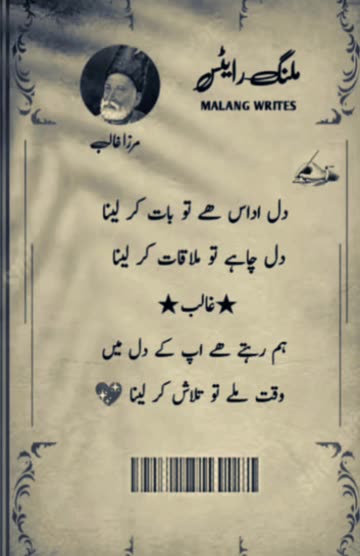 ملنگ رائٹس
MALANG WRITES
مرزا غالب
دل اداس ھے تو بات کر لینا
دل چاہے تو ملاقات کر لینا
★غالب★
ہم رہتے ھے اپ کے دل میں
وقت ملے تو تلاش کر لینا 💖